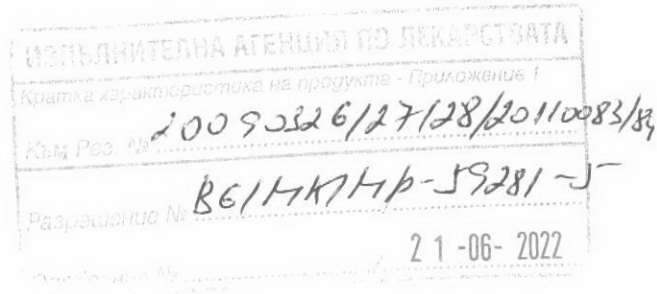 ИЗПЪЛНИТЕЛНА АГЕНЦИЯ ПО ЛЕКАРСТВАТА
Кратка характеристика на продукта - Приложение 1
Към Рег. № 20090326/27/28/20110083/84
Разрешение № BG/MK/Mp-59281-5
21 -06- 2022